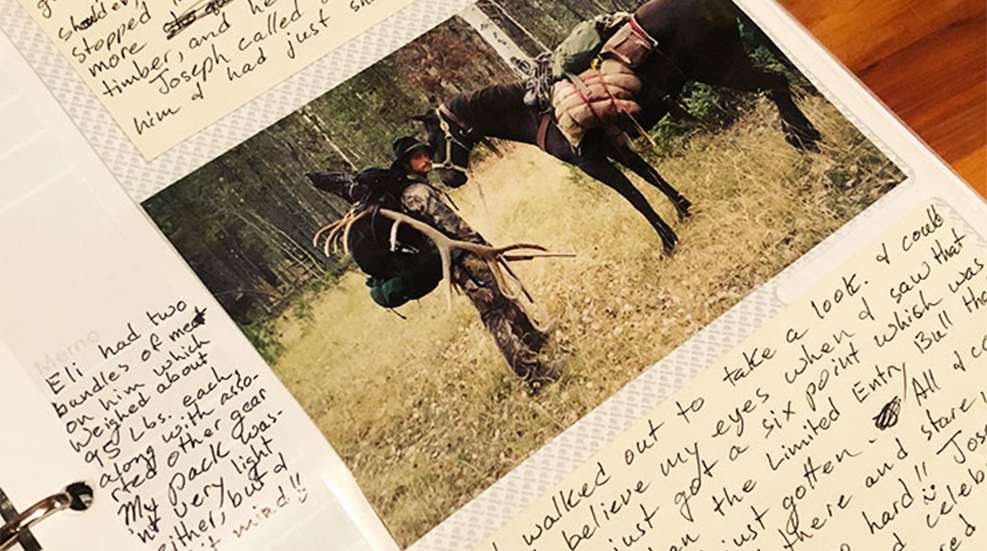 should ev
stopped
more
timber, and he
Joseph called
him & had just
Memo
Eli had two
bundles of meat
on him which
weighed about
95 Lbs. each,
along with assor-
ted other gear
My pack was-
n't very light
either, but I
mind!!
walked out to take a look. & could
believe my eyes when I saw that
just got a six point whish was
than the Limited Entry Bull tha
just gotten - All & c
there and stare,
hard!! Jose
celeb
red